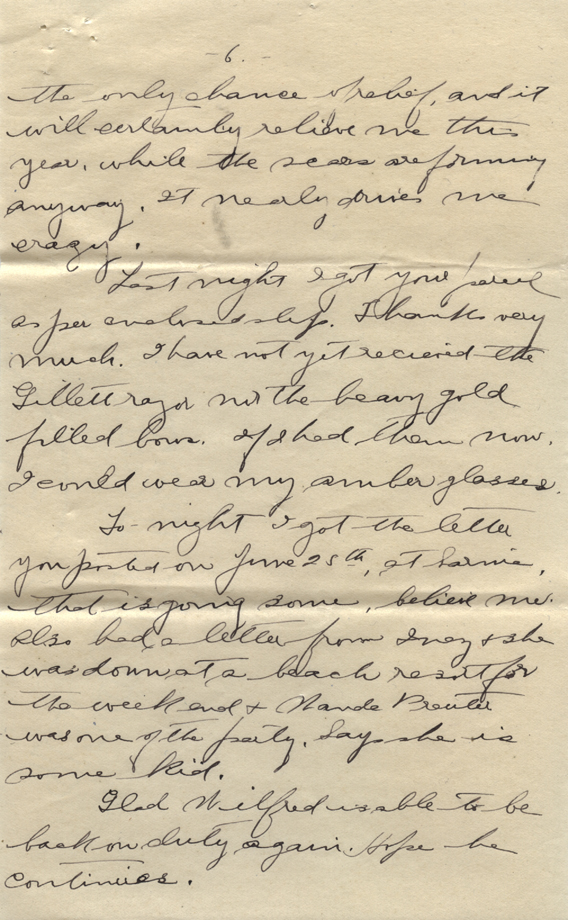 -6.-
the only chance of relief, and it
will certainly relieve me this
year, while the scars are forming
anyway. It nearly drives me
crazy.
Last night I got your parcel
as per enclosed slip. Thanks very
much. I have not yet recieved the
Gillett razor nor the heavy gold
filled bows. If I had them now,
I could wear my amber glasses.
To-night I got the letter
you posted on June 25th, at Sarnia,
that is going some, believe me.
Also had a letter from Inez & she
was down at a beach resort for
the week end &
was one of the party. Says she is
some kid.
Glad Wilfred is able to be
back on duty again. Hope he
continues.